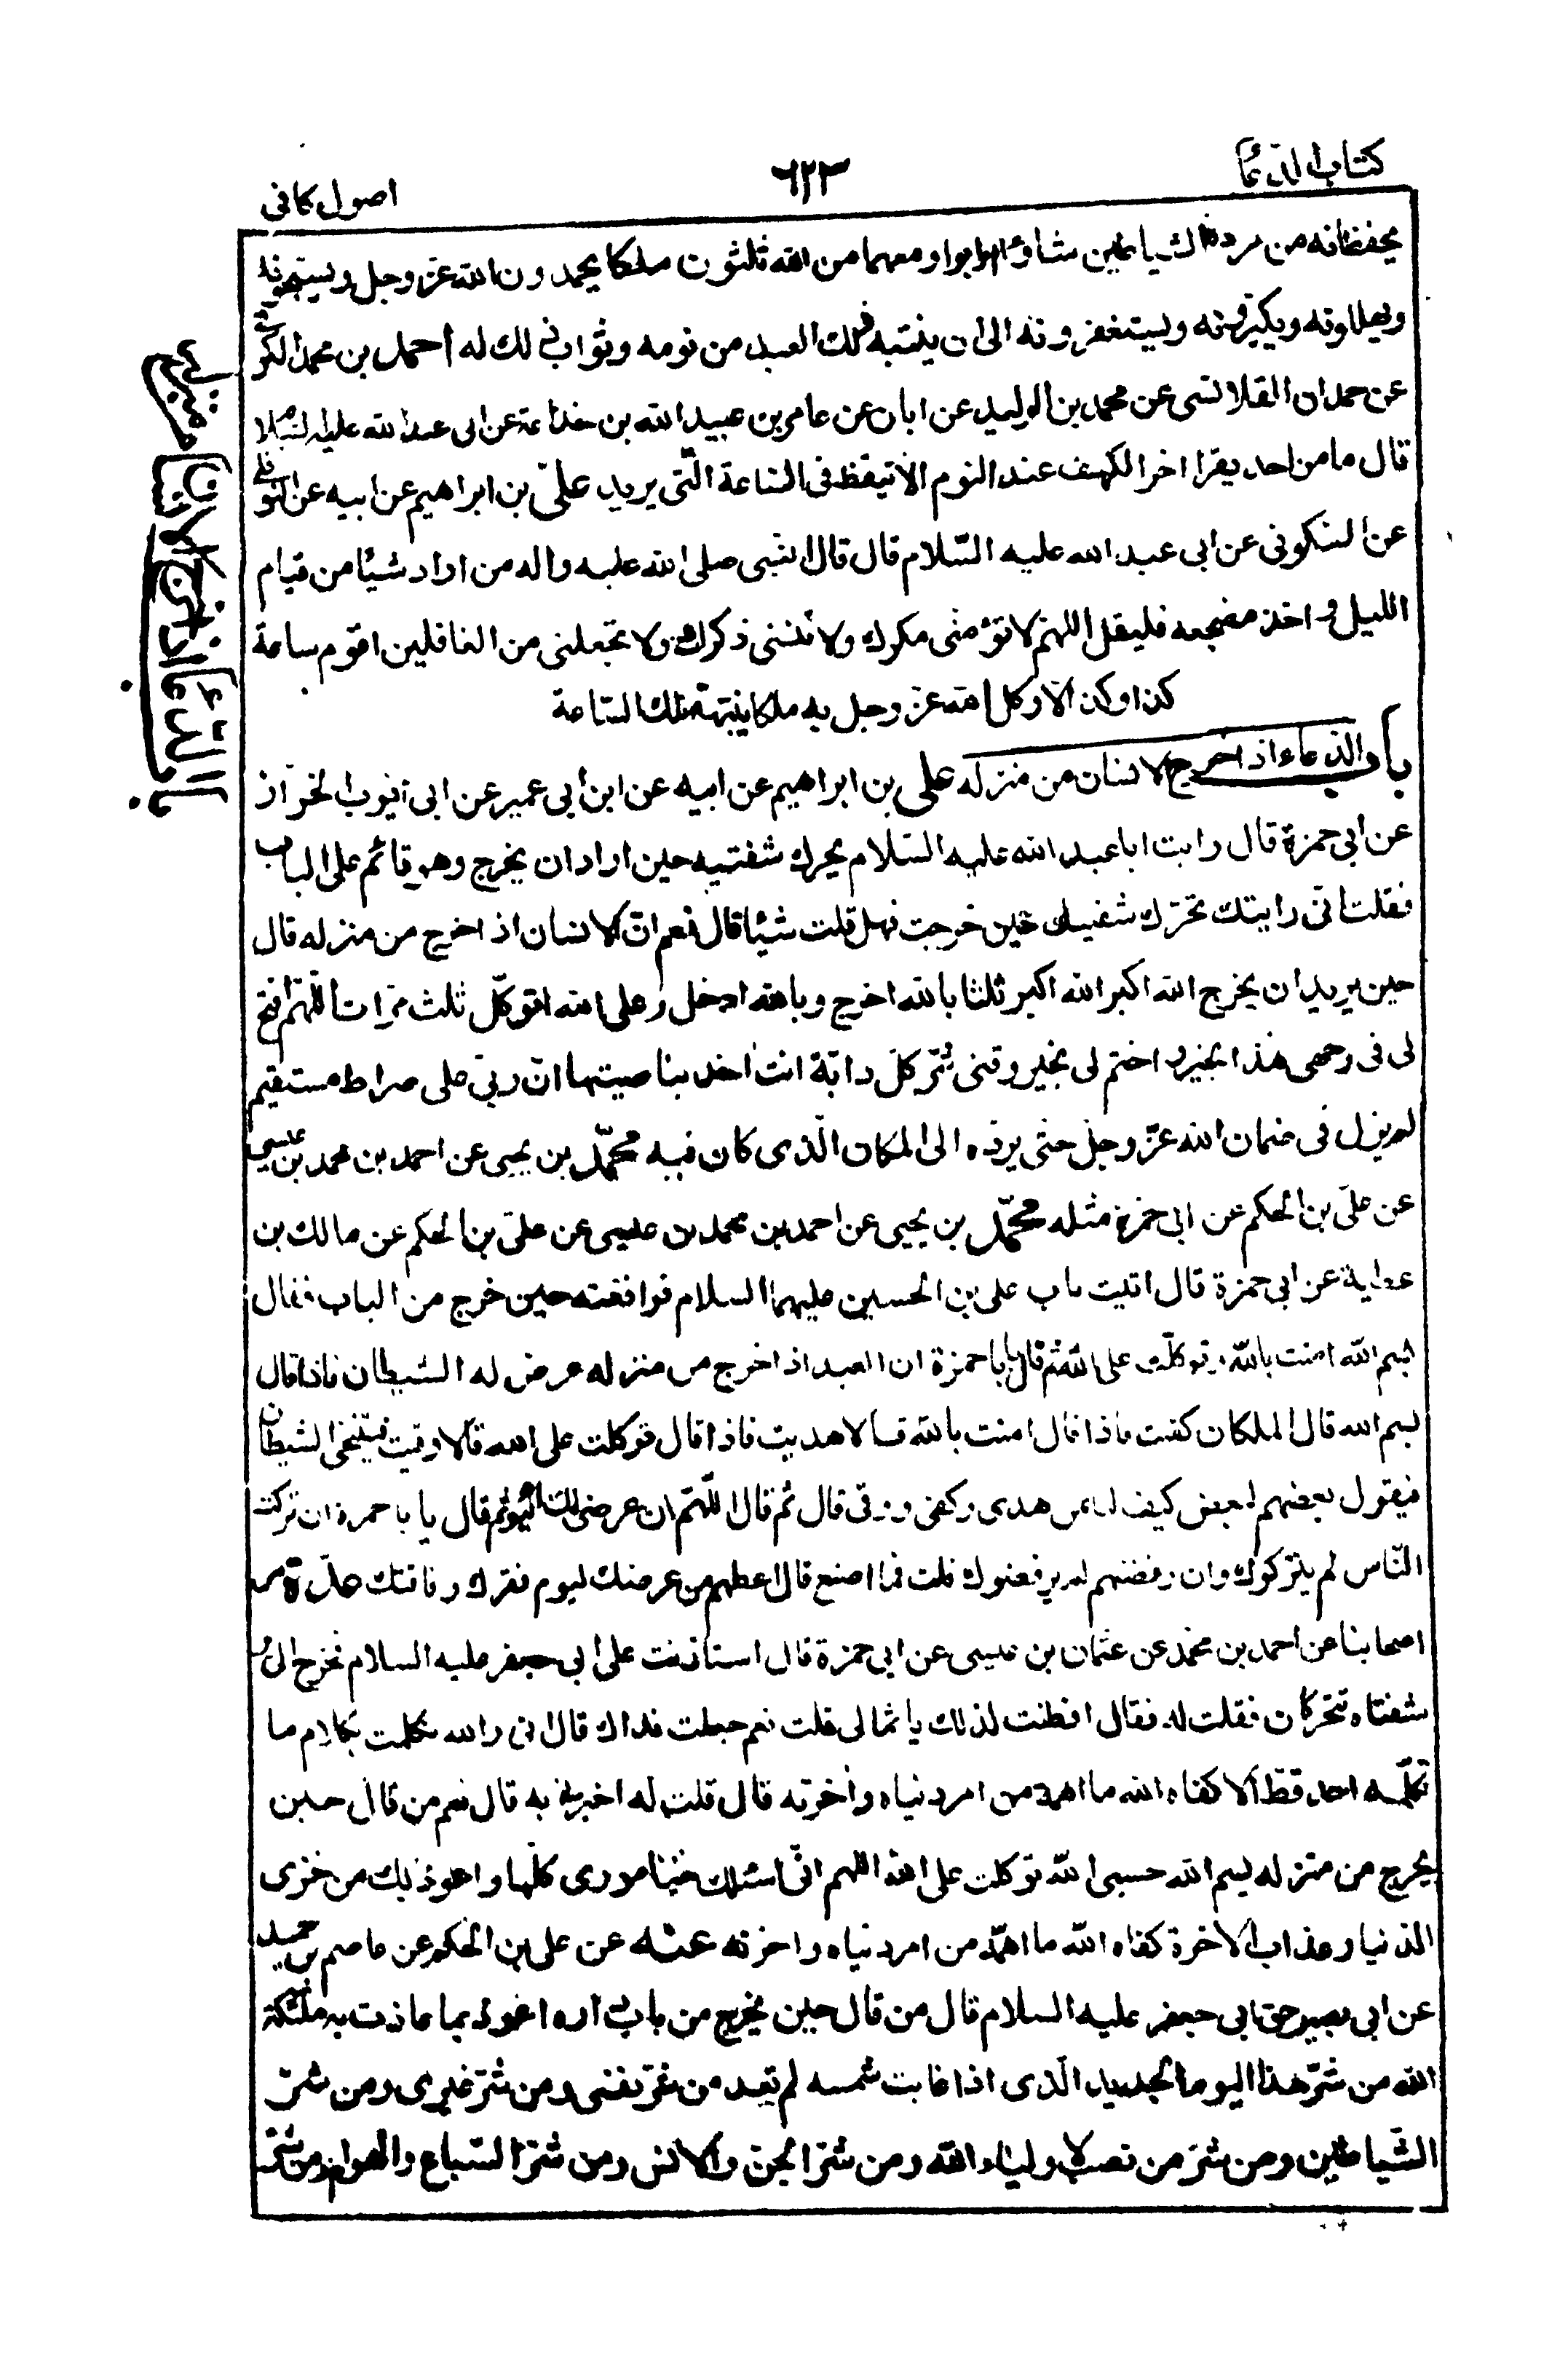 كتاب الدعا
٦٢٣
اصول كافى
يحفظانه من مردة الشياطين شاؤا او ابوا ومعهما من الله ثلثون ملكا يحمدون الله عز وجل ويسبحونه
ويهللونه ويكبرونه ويستغفرونه الى ان ينتبه ذلك العبد من نومه وثواب ذلك له أحمد بن محمد الكوفى
عن حمدان القلانسى عن محمد بن الوليد عن ابان عن عامر بن عبيد الله بن جذاعة عن ابى عبد الله عليه السلام
قال ما من احد يقرا اخر الكهف عند النوم الا تيقظ فى الساعة الّتى يريد علىّ بن ابراهيم عن ابيه عن النوفلى
عن السكونى عن ابى عبد الله عليه السّلام قال قال النبى صلى الله عليه واله من اراد شيئا من قيام
الليل و اخذ مضجعه فليقل اللهم لا تؤمنى مكرك ولا تنسنى ذكرك ولا تجعلنى من الغافلين اقوم ساعة
كذا وكذا الا وكل الله عز وجل به ملكا ينبهه تلك الساعة
باب الدعاء اذا خرج الانسان من منزله على بن ابراهيم عن ابيه عن ابن ابى عمير عن ابى ايوب الخزاز
عن ابى حمزة قال رايت ابا عبد الله عليه السلام يحرك شفتيه حين اراد ان يخرج وهو قائم على الباب
فقلت انى رايتك تحرّك شفتيك حين خرجت فهل قلت شيئا قال نعم انّ الانسان اذا خرج من منزله قال
حين يريد ان يخرج الله اكبر الله اكبر ثلثا بالله اخرج وبالله ادخل وعلى الله اتوكّل ثلث مرات اللّهمّ افتح
لى فى وجهى هذا بخير واختم لى بخير وقنى شرّ كل دابّة انت اخذ بناصيتها انّ ربّى على صراط مستقيم
لم يزل فى ضمان الله عزّ وجلّ حتى يردّه الى المكان الّذى كان فيه محمّد بن يحيى عن احمد بن محمد بن عيسى
عن علىّ بن الحكم عن ابى حمزة مثله محمّد بن يحيى عن احمد بن محمد بن عيسى عن علىّ بن الحكم عن مالك بن
عطية عن ابى حمزة قال اتيت باب على بن الحسين عليهما السلام فوافقته حين خرج من الباب فقال
بسم الله امنت بالله وتوكلت على الله ثم قال يا با حمزة ان العبد اذا خرج من منزله عرض له الشيطان فاذا قال
بسم الله قال الملكان كفيت فاذا قال امنت بالله قالا هديت فاذا قال توكلت على الله قالا وقيت فيتنحى الشيطان
فيقول بعضهم لبعض كيف لنا بمن هدى وكفى ووقى قال ثم قال اللّهمّ ان عرضى لك اليوم ثم قال يا با حمزة ان تركت
النّاس لم يتركوك وان رفضتهم لم يرفضوك قلت فما اصنع قال اعطهم من عرضك ليوم فقرك وفاقتك عدّة من
اصحابنا عن احمد بن محمد عن عثمان بن عيسى عن ابى حمزة قال استاذنت على ابى جعفر عليه السلام فخرج الىّ و
شفتاه تتحركان فقلت له فقال افطنت لذلك يا ثمالى قلت نعم جعلت فداك قال انى والله تكلمت بكلام ما
تكلّم به احد قطّ الا كفاه الله ما اهمه من امر دنياه واخرته قال قلت له اخبرنى به قال نعم من قال حين
يخرج من منزله بسم الله حسبى الله توكلت على الله اللهم انّى اسئلك خير امورى كلّها واعوذ بك من خزى
الدنيا وعذاب الاخرة كفاه الله ما اهمّه من امر دنياه واخرته عنه عن على بن الحكم عن عاصم بن حميد
عن ابى بصير عن ابى جعفر عليه السلام قال من قال حين يخرج من باب داره اعوذ بما عاذت به ملئكة
الله من شرّ هذا اليوم الجديد الّذى اذا غابت شمسه لم يعد من شرّ نفسى ومن شرّ غيرى ومن شرّ
الشّياطين ومن شرّ من نصب لاولياء الله ومن شرّ الجن والانس ومن شرّ السّباع والهوام ومن شرّ
باب الدّعاء اذا خرج الانسان من منزله